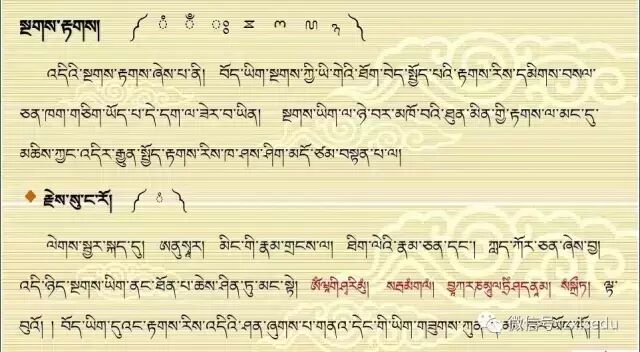 སྔགས་རྟགས།
འདིའི་སྔགས་རྟགས་ཞེས་པ་ནི། བོད་ཡིག་སྔགས་ཀྱི་ཡི་གེའི་ཐོག་བེད་སྤྱོད་པའི་རྟགས་རིས་དམིགས་བསལ་
ཅན་ཁག་གཅིག་ཡོད་པ་དེ་དག་ལ་ཟེར་བ་ཡིན། སྔགས་ཡིག་ལ་ཉེ་བར་མཁོ་བའི་ཐུན་མིན་གྱི་རྟགས་ལ་མང་དུ་
མཆིས་ཀྱང་འདིར་རྒྱུན་སྤྱོད་རྟགས་རིས་ཁ་ཤས་ཤིག་མདོ་ཙམ་བསྟན་པ་ལ།
རྗེས་སུ་ང་རོ།
ལེགས་སྦྱར་སྐད་དུ། ཨནུསྭཱར། མིང་གི་རྣམ་གྲངས་ལ། ཐིག་ལེའི་རྣམ་ཅན་དང་། ཀླད་ཀོར་ཅན་ཞེས་བྱ།
འདི་ཉིད་སྔགས་ཡིག་ནང་ཐོན་པ་ཆེས་ཤིན་ཏུ་མང་སྟེ། ལྟ་
བུའོ།། བོད་ཡིག་དུའང་རྟགས་རིས་འདིའི་ཤན་ཞུགས་པ་གནའ་དེང་གི་ཡིག་གཟུགས་ཀུན་
微信号